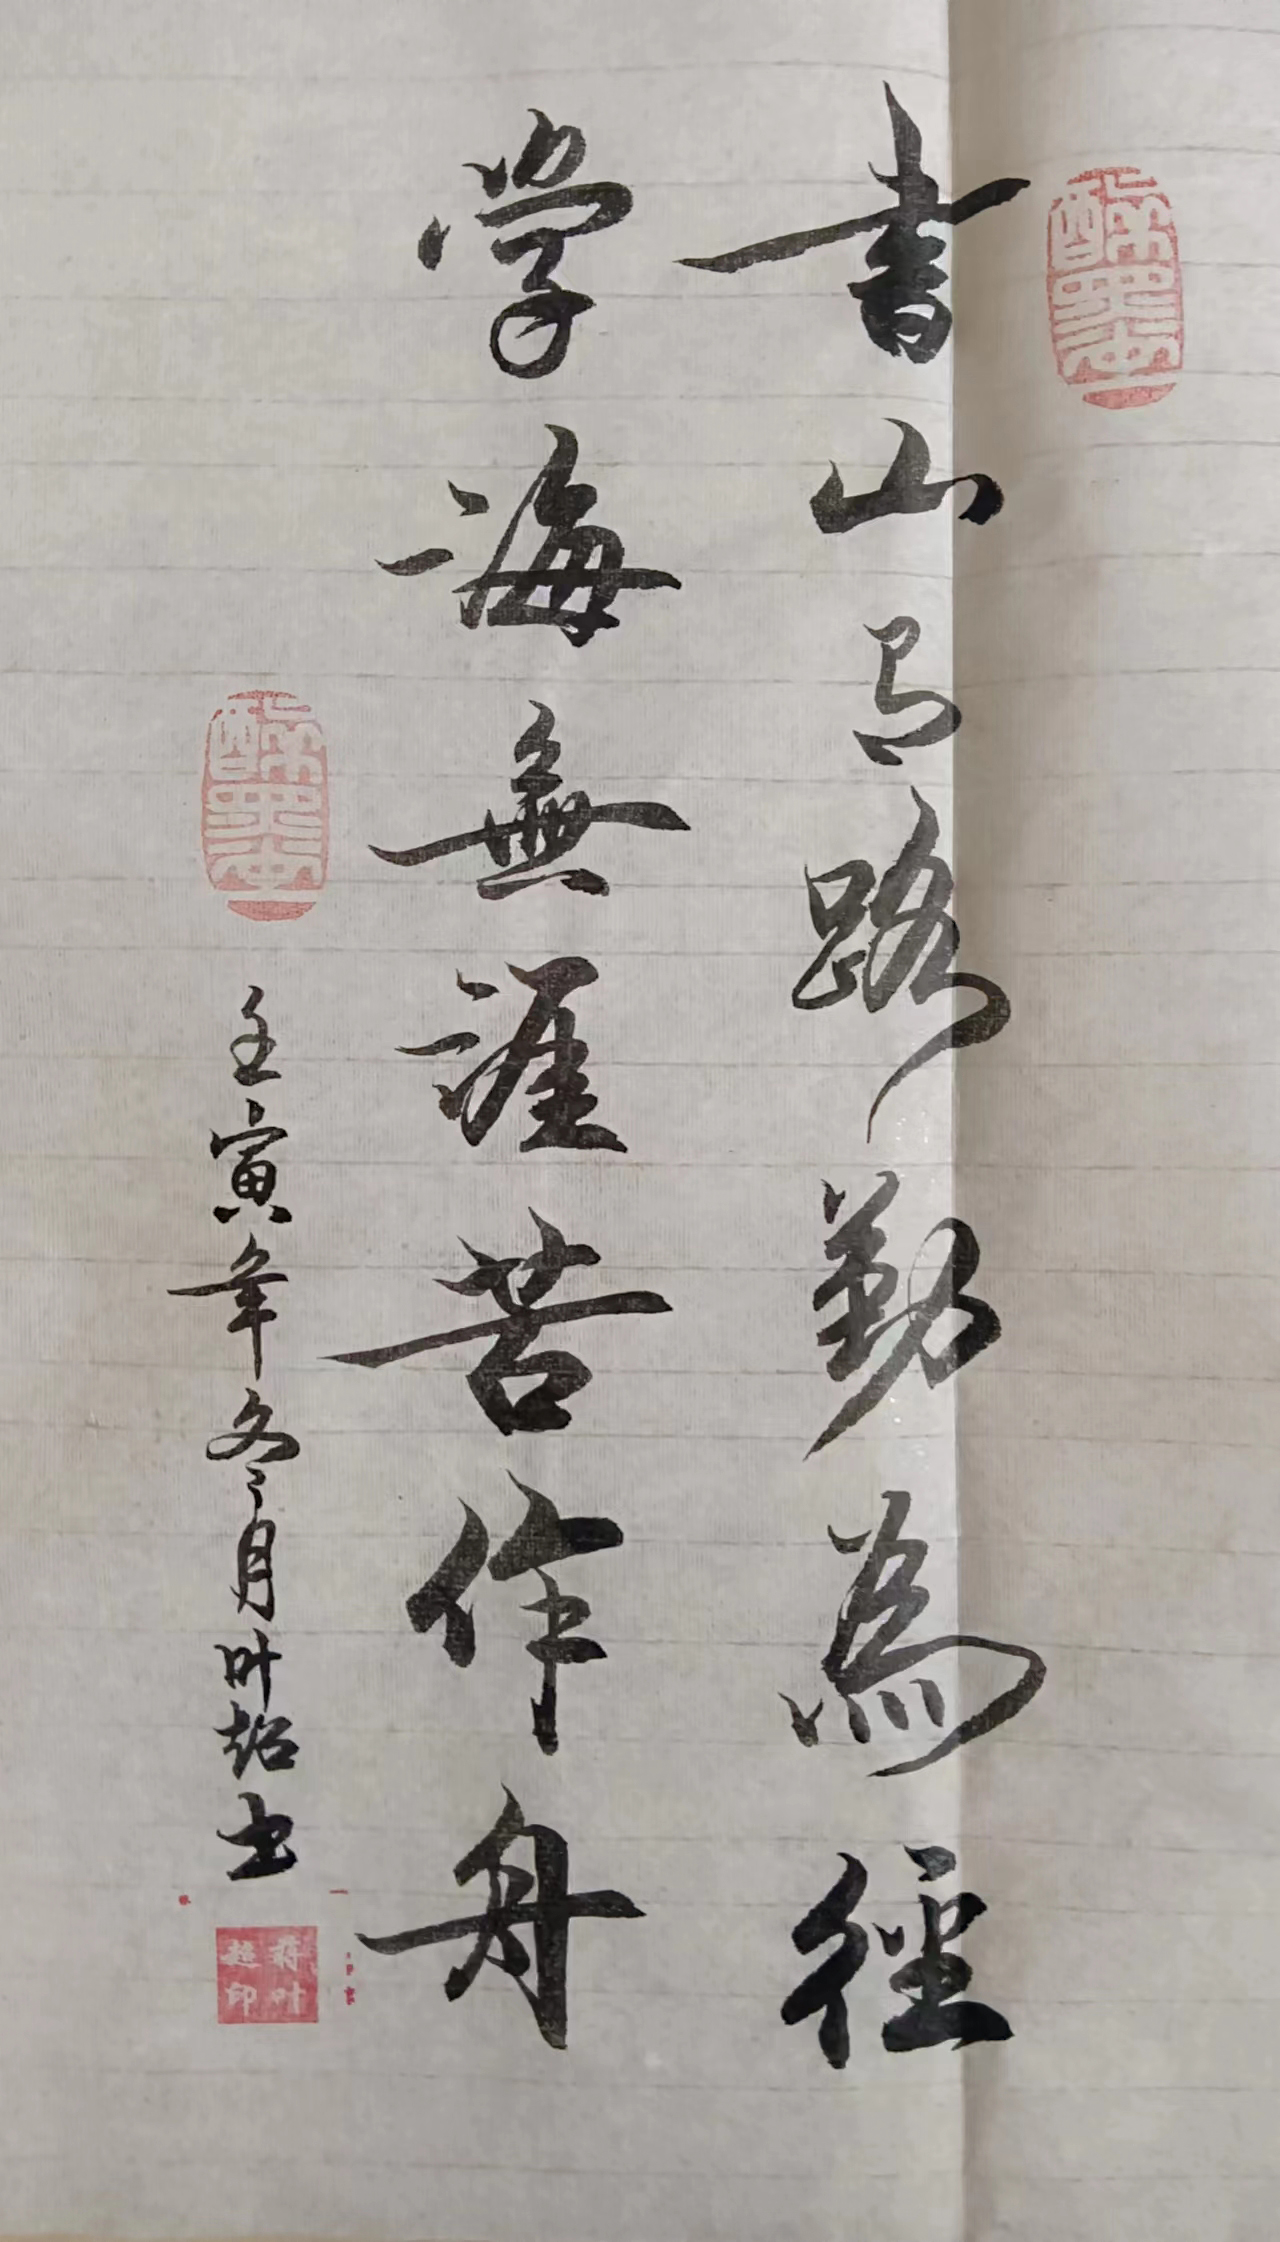 書山有路勤為徑
学海無涯苦作舟
壬寅年冬月叶超书
蒋叶
超印